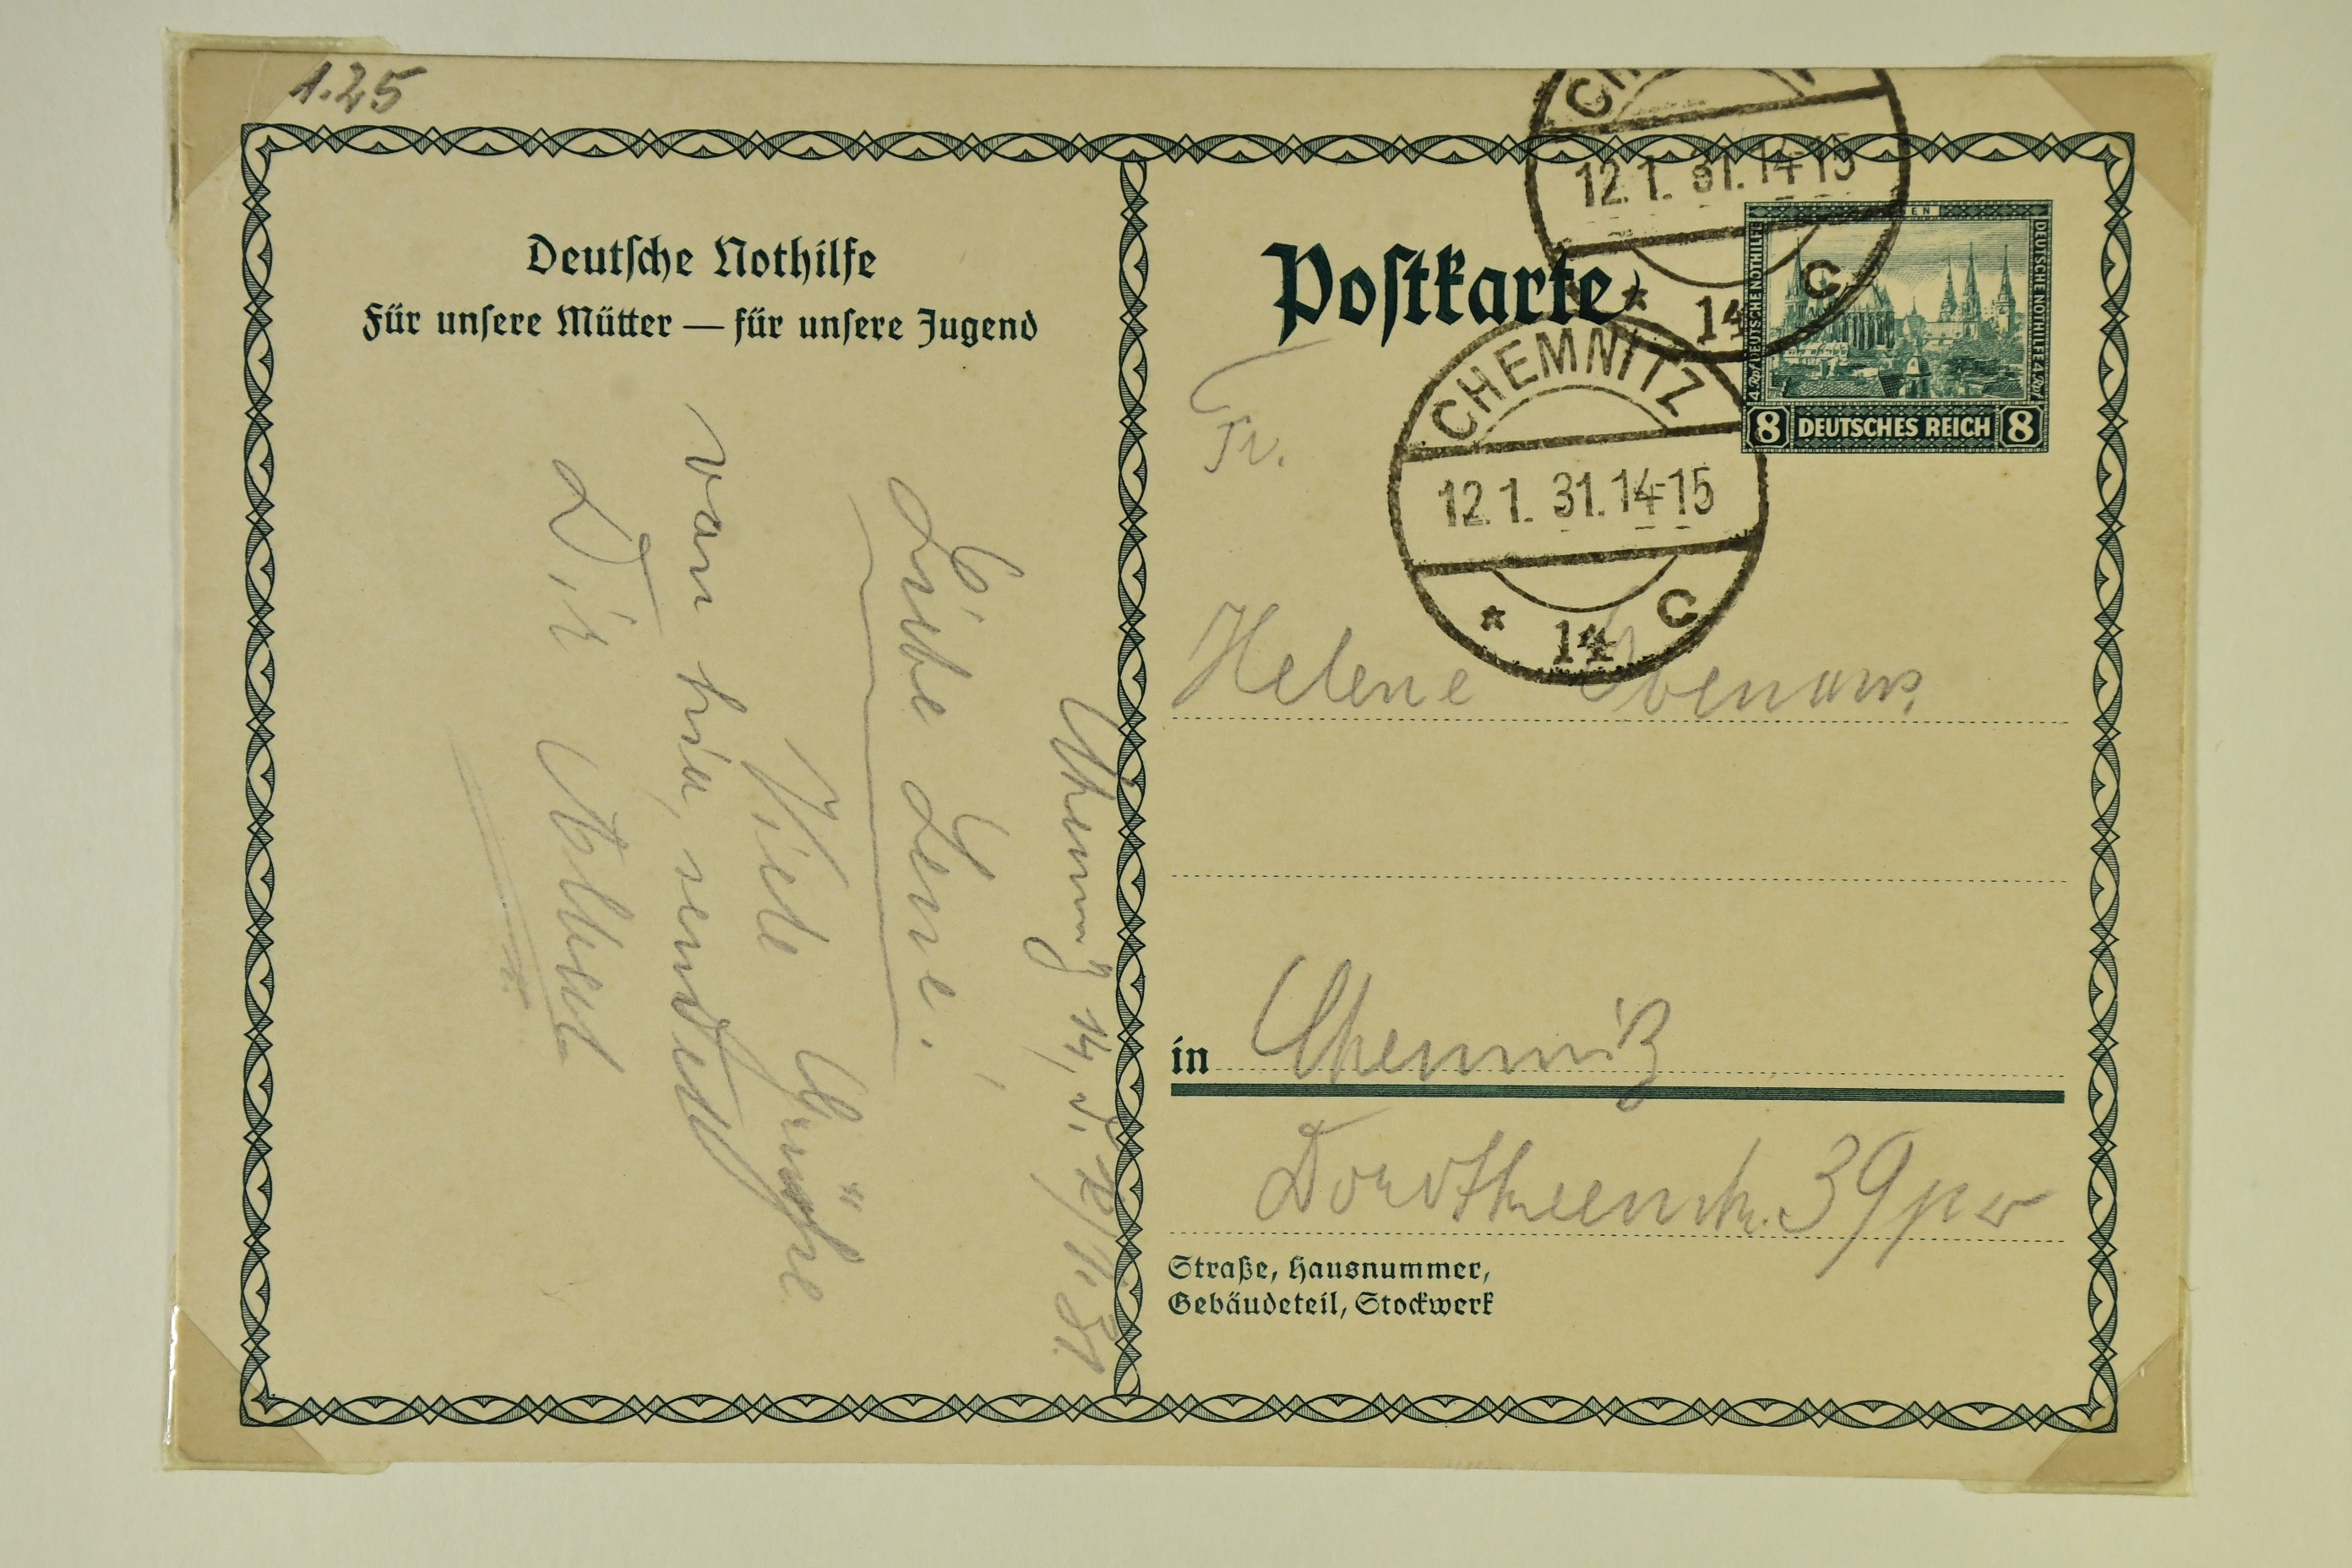 1.25
Deutsche Nothilfe
Für unsere Mütter — für unsere Jugend
Chemnitz 14, d. 12/1. 31
Liebe Lene!
Viele Grüße
von hier, sendet
Dir Albert
Postkarte
CHEMNITZ
12.1.31.14-15
* 14 C
12.1.31.14-15
* 14 C
DEUTSCHE NOTHILFE 4 Rpf
DEUTSCHE NOTHILFE 4 Rpf
8 DEUTSCHES REICH 8
Fr.
Helene
in Chemnitz
Dorotheenstr. 39
Straße, Hausnummer,
Gebäudeteil, Stockwerk